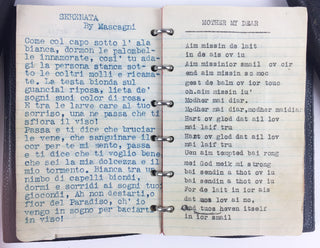 SERENATA
By Mascagni
Come col capo sotto l' ala
bianca, dormon le palombel-
le innamorate, cosi' tu ada-
gi la persona stanca sot-
to le coltri molli e ricama-
te. La testa bionda sul
guancial riposa, lieta de'
sogni suoi color di rosa,
E tra le larve care al tuo
sorriso, una ne passa che ti
sfiora il viso!
Passa e ti dice che bruciar
le vene, che sanguinare il
cor per te mi sento, passa
e ti dice che ti voglio bene
che sei la mia dolcezza e il
mio tormento. Bianca tra un
nimbo di capelli biondi,
dormi e sorridi ai sogni tuoi
giocondi, Ah non destarti,o
fior del Paradiso, oh' io
vengo in sogno per baciarti
in viso!
MOTHER MY DEAR
Aim missin de lait
in de ais ov iu
Aim missinior smail ov cir
end aim missin so moc
gest de balm ov ior touc
oh.aim missin iu'
Modher mai diar.
Modher mai diar,modher maidiar
Hart ov glod dat ail lov
mai laif tru
Hart ov glod dat ail lov
mai laif tru
Uen aim tempted bai rong
mei God meik mi strong
bai sendin a thot ov iu
bai sendin a thot ov iu
For de lait in ior ais
dat mos lov ai no,
End tuos haven itself
in ior smail